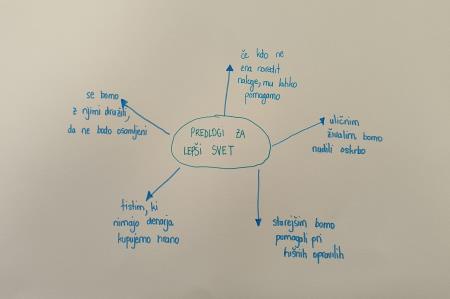 če kdo ne
zna naredit
naloge, mu lahko
pomagamo
se bomo
z njimi družili,
da ne bodo osamljeni
PREDLOGI ZA
LEPŠI SVET
uličnim
živalim bomo
nudili oskrbo
tistim, ki
nimajo denarja
kupujemo hrano
starejšim bomo
pomagali pri
hišnih opravilih